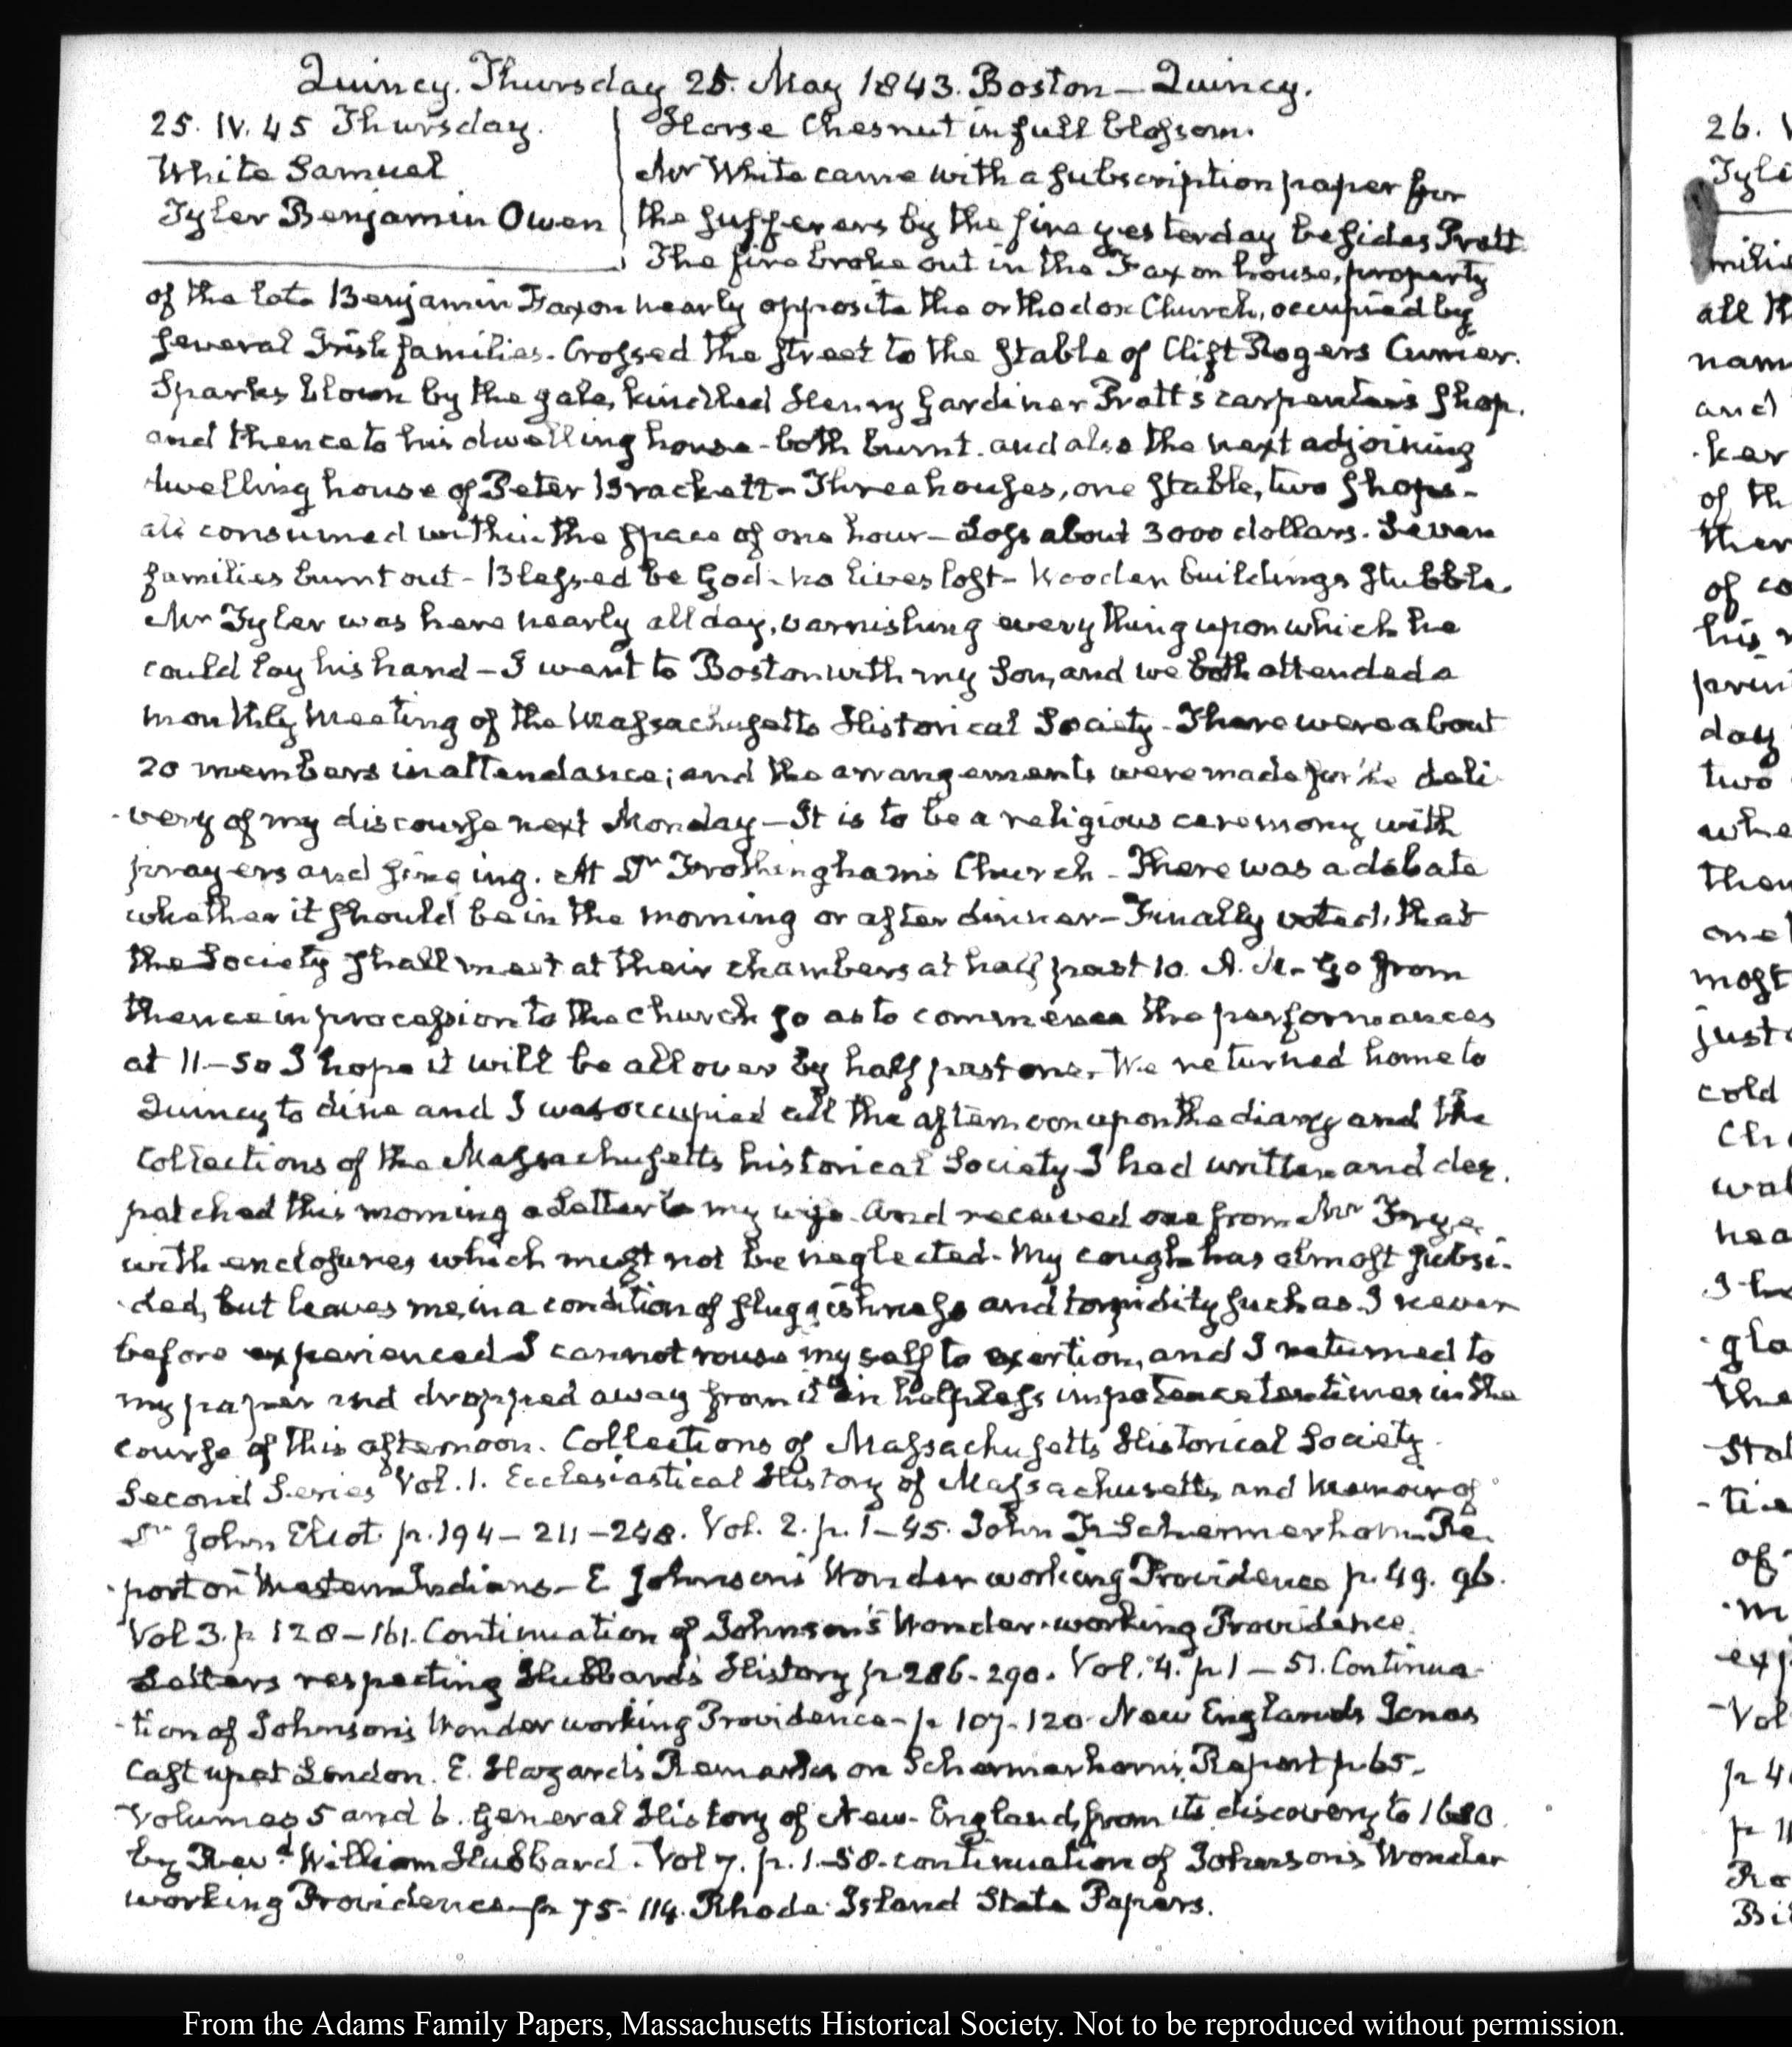 Quincy. Thursday 25. May 1843. Boston — Quincy.
25. IV. 45 Thursday.
White Samuel
Tyler Benjamin Owen
Horse Chesnut in full blossom.
Mr White came with a subscription paper for
the sufferers by the fire yesterday besides Pratt
The fire broke out in the Faxon house, property
of the late Benjamin Faxon nearly opposite the orthodox Church, occupied by
several Irish families. Crossed the street to the stable of Clift Rogers
Sparks blown by the gale, kindled Henry Gardiner Pratt's carpenter's shop.
and thence to his dwelling house - both burnt. and also the next adjoining
dwelling house of Peter Brackett - Three houses, one stable, two shops -
all consumed within the space of one hour - Loss about 3000 dollars. Seven
families burnt out - Blessed be God - no lives lost - Wooden buildings stubble.
Mr Tyler was here nearly all day, varnishing every thing upon which he
could lay his hand - I went to Boston with my Son, and we both attended a
monthly Meeting of the Massachusetts Historical Society - There were about
20 members in attendance; and the arrangements were made for the deli
-very of my discourse next Monday - It is to be a religious ceremony with
prayers and singing. At Dr Frothingham's Church - There was a debate
whether it should be in the morning or after dinner - Finally voted, that
the Society shall meet at their chambers at half past 10. A.M. - go from
thence in procession to the church so as to commence the performances
at 11 - So I hope it will be all over by half past one. We returned home to
Quincy to dine and I was occupied all the afternoon upon the diary and the
Collections of the Massachusetts historical Society I had written and des.
patched this morning a Letter to my wife. And received one from Mr Frye
with enclosures which must not be neglected - My cough has almost subsi-
-ded, but leaves me in a condition of sluggishness and torpidity such as I never
before experienced I cannot rouse myself to exertion, and I returned to
my paper and dropped away from it in helpless impotence ten times in the
course of this afternoon. Collections of Massachusetts Historical Society.
Second Series Vol. 1. Ecclesiastical History of Massachusetts and Memoir of
Dr John Eliot. p. 194 - 211 - 248. Vol. 2. p. 1-45. John F. Schermerhorn Re.
-port on Western Indians - E Johnson's Wonder working Providence p. 49. 96.
Vol 3. p 128 - 161. Continuation of Johnson's Wonder-working Providence.
Letters respecting Hubbard's History p 286-290. Vol. 4. p 1 - 51. Continua-
-tion of Johnson's Wonder working Providence - p 107-120 - New England's Jonas
Cast up at London. E. Hazard's Remarks on Schermerhorn's Report p 65.
Volumes 5 and 6. General History of New-England, from its discovery to 1680
by Revd. William Hubbard. Vol 7. p. 1-58. continuation of Johnson's Wonder
working Providence - p 75 - 114. Rhode Island State Papers.
26.
all
nam
and
of th
ther
of co
his
day
two
whe
then
one
most
just
cold
wal
hea
gla
the
of
Vol
From the Adams Family Papers, Massachusetts Historical Society. Not to be reproduced without permission.